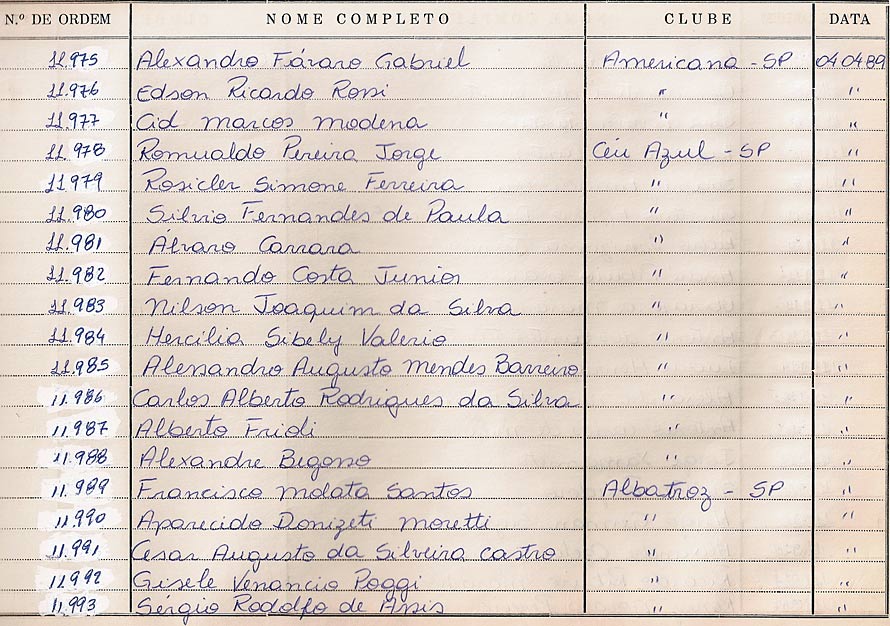 N.º DE ORDEM NOME COMPLETO CLUBE DATA
11.975 Alexandro Fávaro Gabriel Americana - SP 04 04 89
11.976 Edson Ricardo Rossi " "
11.977 Cid Marcos Modena " "
11.978 Romualdo Pereira Jorge Céu Azul - SP "
11.979 Rosicler Simone Ferreira " "
11.980 Silvio Fernandes de Paula " "
11.981 Álvaro Carrara " "
11.982 Fernando Costa Junior " "
11.983 Nilson Joaquim da Silva " "
11.984 Hercilia Sibely Valerio " "
11.985 Alessandro Augusto Mendes Barreiro " "
11.986 Carlos Alberto Rodrigues da Silva " "
11.987 Alberto " "
11.988 Alexandre " "
11.989 Francisco Molata Santos Albatroz - SP "
11.990 Aparecido Donizeti Moretti " "
11.991 Cesar Augusto da Silveira Castro " "
11.992 Gisele Venancio Poggi " "
11.993 Sérgio Rodolfo de Assis " "